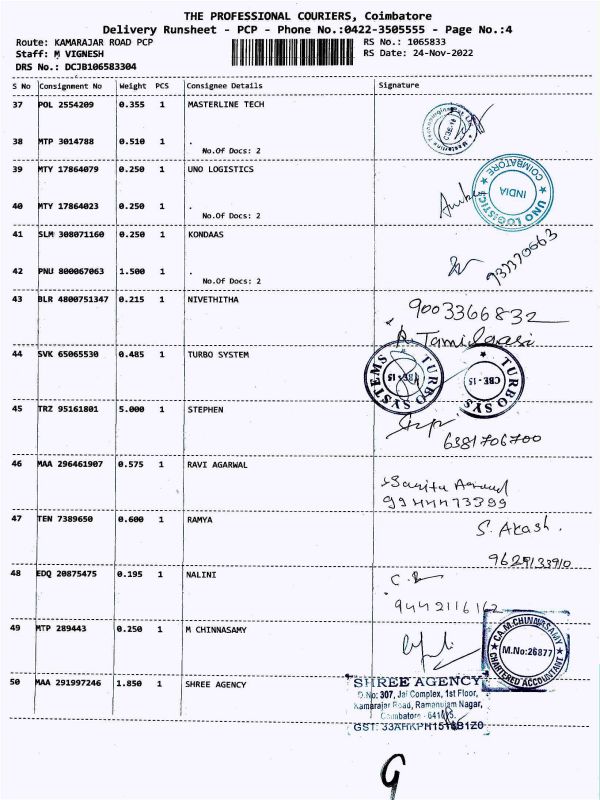 THE PROFESSIONAL COURIERS, Coimbatore
Delivery Runsheet - PCP - Phone No.:0422-3505555 - Page No.:4
Route: KAMARAJAR ROAD PCP RS No.: 1065833
Staff: M VIGNESH RS Date: 24-Nov-2022
DRS No.: DCJB106583304
S No Consignment No Weight PCS Consignee Details Signature
37 POL 2554209 0.355 1 MASTERLINE TECH
38 MTP 3014788 0.510 1 .
No.Of Docs: 2
39 MTY 17864079 0.250 1 UNO LOGISTICS
COIMBATORE
INDIA
UNO LOGISTICS
40 MTY 17864023 0.250 1 .
No.Of Docs: 2
41 SLM 308071160 0.250 1 KONDAAS
42 PNU 800067063 1.500 1 .
No.Of Docs: 2
43 BLR 4800751347 0.215 1 NIVETHITHA
9003366832
A. Tamilaasi
44 SVK 65065530 0.485 1 TURBO SYSTEM
TURBO SYSTEMS CBE - 15
TURBO SYS CBE - 15
45 TRZ 95161801 5.000 1 STEPHEN
6381706700
46 MAA 296461907 0.575 1 RAVI AGARWAL
9944473399
47 TEN 7389650 0.600 1 RAMYA
S. Akash.
9629133910
48 EDQ 20875475 0.195 1 NALINI
9442116162
49 MTP 289443 0.250 1 M CHINNASAMY
CA.M.CHINNASAMY
M.No:26877
CHARTERED ACCOUNTANT
50 MAA 291997246 1.850 1 SHREE AGENCY
SHREE AGENCY
D.No: 307, Jai Complex, 1st Floor,
Kamarajar Road, Ramanujam Nagar,
Coimbatore - 641015.
9